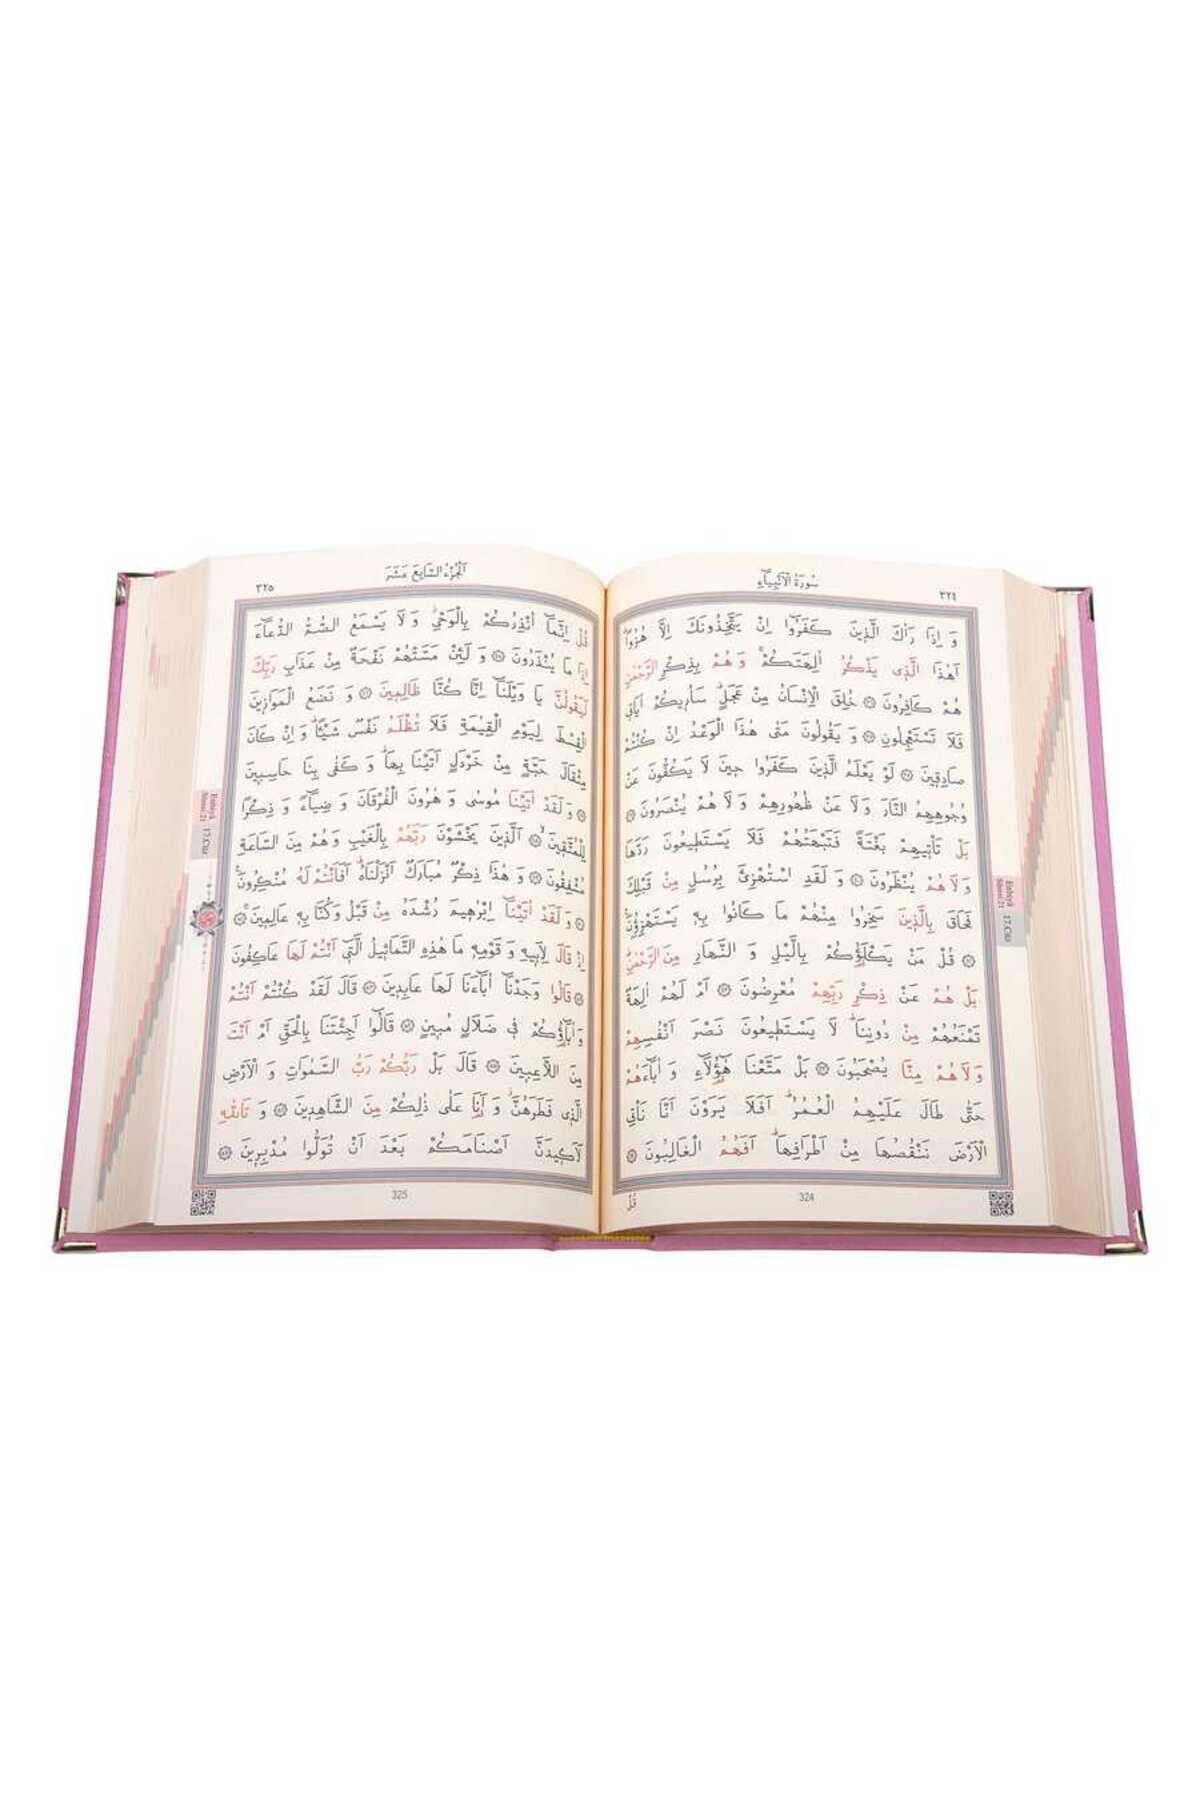 سُورَةُ الْاَنْبِيَاءِ
٣٢٤
وَ اِذَا رَاٰكَ الَّذٖينَ كَفَرُٓوا اِنْ يَتَّخِذُونَكَ اِلَّا هُزُوًاؕ
اَهٰذَا الَّذٖى يَذْكُرُ اٰلِهَتَكُمْۚ وَ هُمْ بِذِكْرِ الرَّحْمٰنِ
هُمْ كَافِرُونَ ﴿٣٦﴾ خُلِقَ الْاِنْسَانُ مِنْ عَجَلٍؕ سَاُرٖيكُمْ اٰيَاتٖى
فَلَا تَسْتَعْجِلُونِ ﴿٣٧﴾ وَ يَقُولُونَ مَتٰى هٰذَا الْوَعْدُ اِنْ كُنْتُمْ
صَادِقٖينَ ﴿٣٨﴾ لَوْ يَعْلَمُ الَّذٖينَ كَفَرُوا حٖينَ لَا يَكُفُّونَ عَنْ
وُجُوهِهِمُ النَّارَ وَ لَا عَنْ ظُهُورِهِمْ وَ لَا هُمْ يُنْصَرُونَ ﴿٣٩﴾
بَلْ تَاْتٖيهِمْ بَغْتَةً فَتَبْهَتُهُمْ فَلَا يَسْتَطٖيعُونَ رَدَّهَا
وَ لَا هُمْ يُنْظَرُونَ ﴿٤٠﴾ وَ لَقَدِ اسْتُهْزِئَ بِرُسُلٍ مِنْ قَبْلِكَ
فَحَاقَ بِالَّذٖينَ سَخِرُوا مِنْهُمْ مَا كَانُوا بِهٖ يَسْتَهْزِؤُنَ
﴿٤١﴾ قُلْ مَنْ يَكْلَؤُكُمْ بِالَّيْلِ وَ النَّهَارِ مِنَ الرَّحْمٰنِؕ
بَلْ هُمْ عَنْ ذِكْرِ رَبِّهِمْ مُعْرِضُونَ ﴿٤٢﴾ اَمْ لَهُمْ اٰلِهَةٌ
تَمْنَعُهُمْ مِنْ دُونِنَاؕ لَا يَسْتَطٖيعُونَ نَصْرَ اَنْفُسِهِمْ
وَ لَا هُمْ مِنَّا يُصْحَبُونَ ﴿٤٣﴾ بَلْ مَتَّعْنَا هٰٓؤُلَٓاءِ وَ اٰبَٓاءَهُمْ
حَتّٰى طَالَ عَلَيْهِمُ الْعُمُرُؕ اَفَلَا يَرَوْنَ اَنَّا نَاْتِى
الْاَرْضَ نَنْقُصُهَا مِنْ اَطْرَافِهَاؕ اَفَهُمُ الْغَالِبُونَ ﴿٤٤﴾
324
قُلْ
Enbiyâ
Sûresi:21
17.Cüz
اَلْجُزْءُ السَّابِعَ عَشَرَ
٣٢٥
قُلْ اِنَّمَٓا اُنْذِرُكُمْ بِالْوَحْىِؗ وَ لَا يَسْمَعُ الصُّمُّ الدُّعَٓاءَ
اِذَا مَا يُنْذَرُونَ ﴿٤٥﴾ وَ لَئِنْ مَسَّتْهُمْ نَفْحَةٌ مِنْ عَذَابِ رَبِّكَ
لَيَقُولُنَّ يَا وَيْلَنَٓا اِنَّا كُنَّا ظَالِمٖينَ ﴿٤٦﴾ وَ نَضَعُ الْمَوَازٖينَ
الْقِسْطَ لِيَوْمِ الْقِيٰمَةِ فَلَا تُظْلَمُ نَفْسٌ شَيْئًاؕ وَ اِنْ كَانَ
مِثْقَالَ حَبَّةٍ مِنْ خَرْدَلٍ اَتَيْنَا بِهَاؕ وَ كَفٰى بِنَا حَاسِبٖينَ
﴿٤٧﴾ وَ لَقَدْ اٰتَيْنَا مُوسٰى وَ هٰرُونَ الْفُرْقَانَ وَ ضِيَٓاءً وَ ذِكْرًا
لِلْمُتَّقٖينَۙ ﴿٤٨﴾ اَلَّذٖينَ يَخْشَوْنَ رَبَّهُمْ بِالْغَيْبِ وَ هُمْ مِنَ السَّاعَةِ
مُشْفِقُونَ ﴿٤٩﴾ وَ هٰذَا ذِكْرٌ مُبَارَكٌ اَنْزَلْنَاهُؕ اَفَاَنْتُمْ لَهُ مُنْكِرُونَ
﴿٥٠﴾ وَ لَقَدْ اٰتَيْنَٓا اِبْرٰهٖيمَ رُشْدَهُ مِنْ قَبْلُ وَ كُنَّا بِهٖ عَالِمٖينَۚ ﴿٥١﴾
اِذْ قَالَ لِاَبٖيهِ وَ قَوْمِهٖ مَا هٰذِهِ التَّمَاثٖيلُ الَّتٖٓى اَنْتُمْ لَهَا عَاكِفُونَ
﴿٥٢﴾ قَالُوا وَجَدْنَٓا اٰبَٓاءَنَا لَهَا عَابِدٖينَ ﴿٥٣﴾ قَالَ لَقَدْ كُنْتُمْ اَنْتُمْ
وَ اٰبَٓاؤُكُمْ فٖى ضَلَالٍ مُبٖينٍ ﴿٥٤﴾ قَالُٓوا اَجِئْتَنَا بِالْحَقِّ اَمْ اَنْتَ
مِنَ اللَّاعِبٖينَ ﴿٥٥﴾ قَالَ بَلْ رَبُّكُمْ رَبُّ السَّمٰوَاتِ وَ الْاَرْضِ
الَّذٖى فَطَرَهُنَّؗ وَ اَنَا عَلٰى ذٰلِكُمْ مِنَ الشَّاهِدٖينَ ﴿٥٦﴾ وَ تَاللّٰهِ
لَاَكٖيدَنَّ اَصْنَامَكُمْ بَعْدَ اَنْ تُوَلُّوا مُدْبِرٖينَ ﴿٥٧﴾
325
Enbiyâ
Sûresi:21
17.Cüz